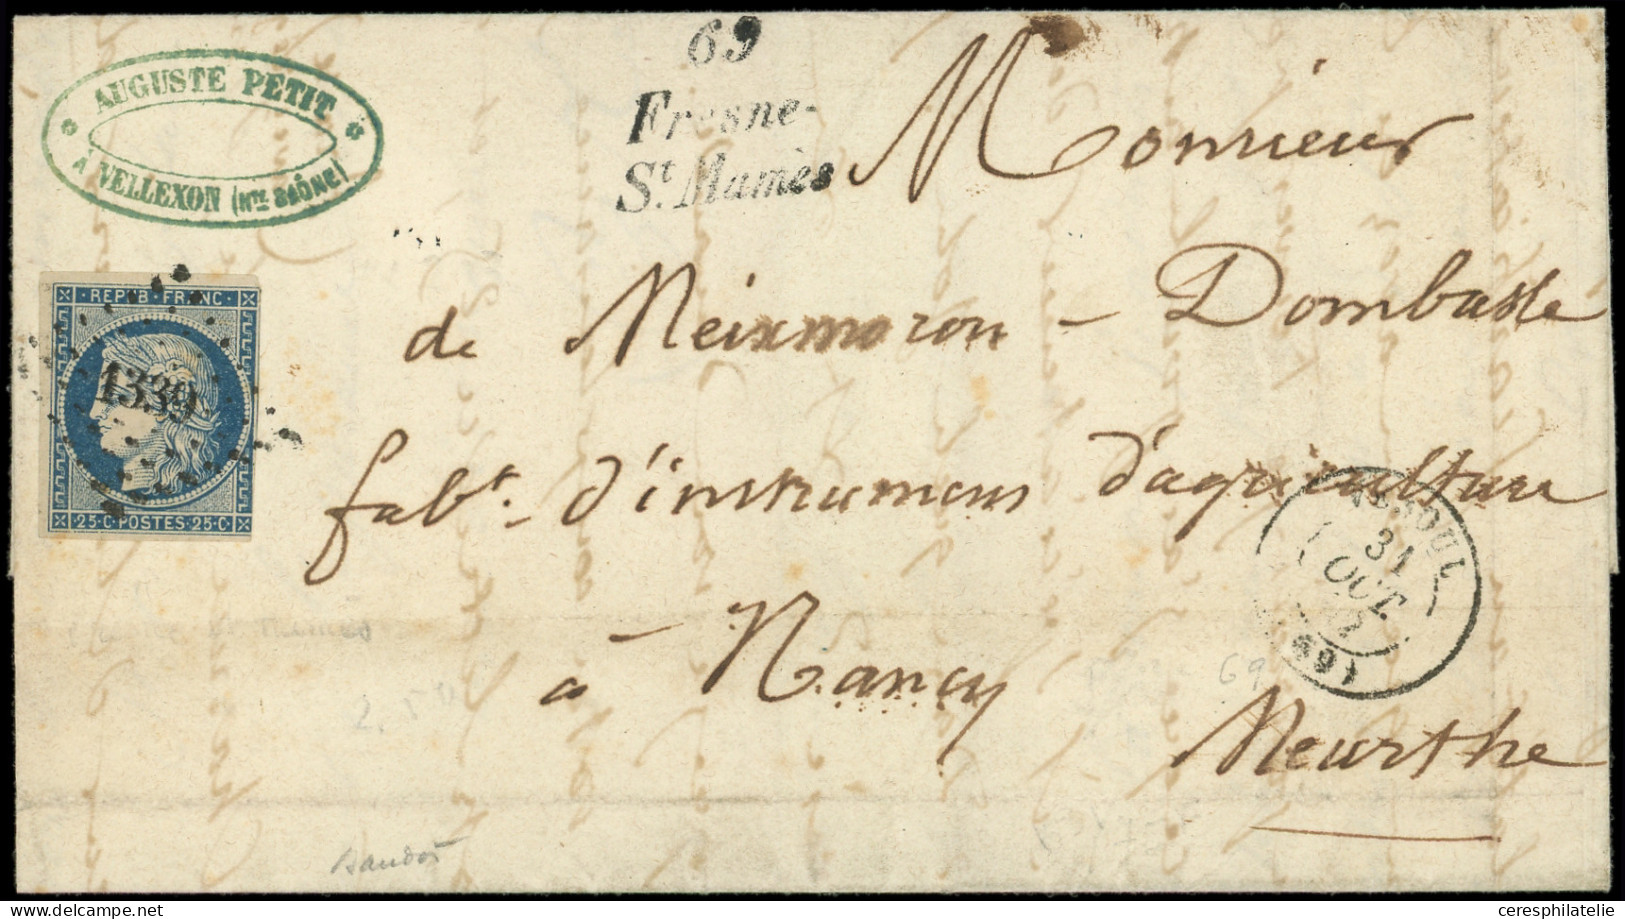 69
Fresne-
St. Mamès
AUGUSTE PETIT
À VELLEXON (Hte SAÔNE)
Monsieur
de Meixmoron - Dombasle
REPUB. FRANC.
1339
25.C. POSTES. 25.C.
fabt. d'instrumens d'agriculture
VESOUL
31
OCT.
(69)
à Nancy
69
Meurthe
ceresphilatelie